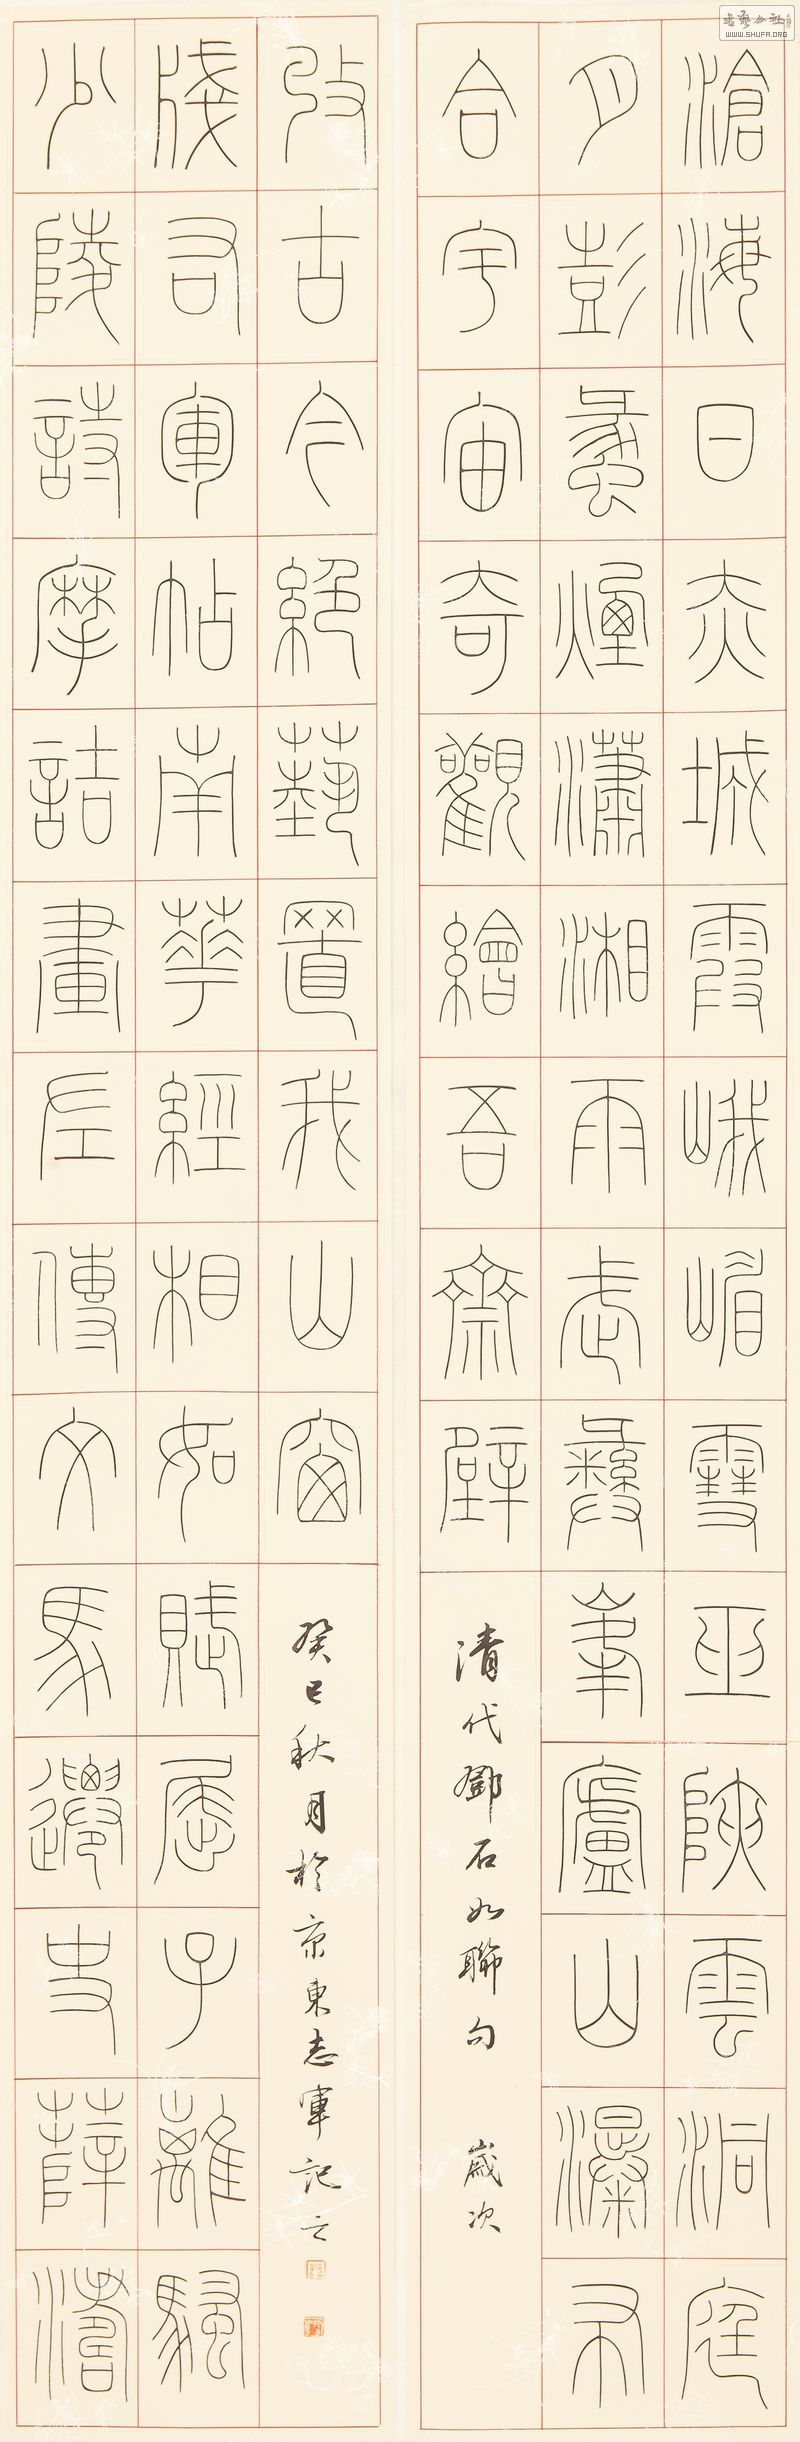 書藝公社
WWW.SHUFA.ORG
滄海日赤城霞峨嵋雪巫陜雲洞庭
月彭蠡煙瀟湘雨武彝峯廬山瀑布
合宇宙奇觀繪吾齋壁
清代鄧石如聯句 歲次
少陵詩摩詰畫左傳文馬遷史薛濤
牋右軍帖南華經相如賦屈子離騷
收古今絕藝置我山窗
癸巳秋月於京東志軍記之